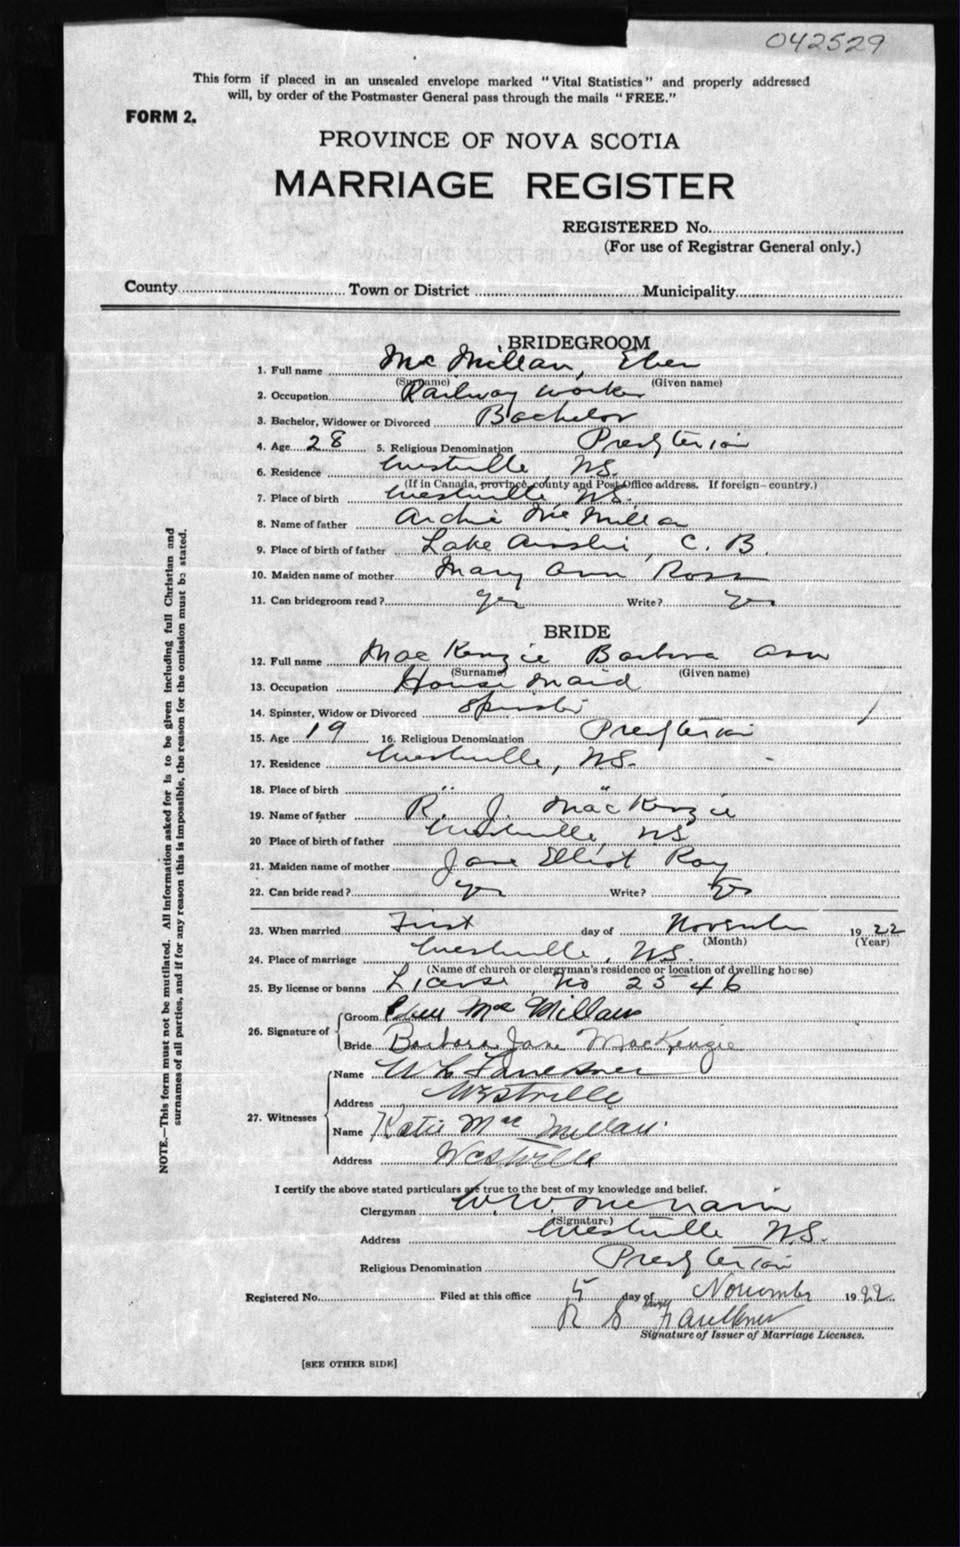 042529
This form if placed in an unsealed envelope marked "Vital Statistics" and properly addressed
will, by order of the Postmaster General pass through the mails "FREE."
FORM 2.
PROVINCE OF NOVA SCOTIA
MARRIAGE REGISTER
REGISTERED No.
(For use of Registrar General only.)
County Town or District Municipality
BRIDEGROOM
1. Full name McMillan, Eben
(Surname) (Given name)
2. Occupation Railway Worker
3. Bachelor, Widower or Divorced Bachelor
4. Age 28 5. Religious Denomination Presbyterian
6. Residence Westville N.S.
(If in Canada, province, county and Post Office address. If foreign-country.)
7. Place of birth Westville, N.S.
8. Name of father Archie McMillan
9. Place of birth of father Lake Ainslie, C. B.
10. Maiden name of mother Mary Ann Ross
11. Can bridegroom read? yes Write? yes
BRIDE
12. Full name MacKenzie Barbara Ann
(Surname) (Given name)
13. Occupation House Maid
14. Spinster, Widow or Divorced Spinster
15. Age 19 16. Religious Denomination Presbyterian
17. Residence Westville, N.S.
18. Place of birth " "
19. Name of father R. J. MacKenzie
20 Place of birth of father Westville, NS
21. Maiden name of mother Jane Elliot Roy
22. Can bride read? yes Write? yes
23. When married First day of November 1922
(Month) (Year)
24. Place of marriage Westville, N.S.
(Name of church or clergyman's residence or location of dwelling house)
25. By license or banns License No 23546
26. Signature of Groom Eben McMillan
Bride Barbara Jane MacKenzie
27. Witnesses Name Faulkner
Address Westville
Name Katie MacMillan
Address Westville
I certify the above stated particulars are true to the best of my knowledge and belief.
Clergyman W. W. McNairn
(Signature)
Address Westville N.S.
Religious Denomination Presbyterian
Registered No. Filed at this office 5 day of November 1922
R S Faulkner
Signature of Issuer of Marriage Licenses.
[SEE OTHER SIDE]
NOTE.—This form must not be mutilated. All information asked for is to be given including full Christian and
surnames of all parties, and if for any reason this is impossible, the reason for the omission must be stated.